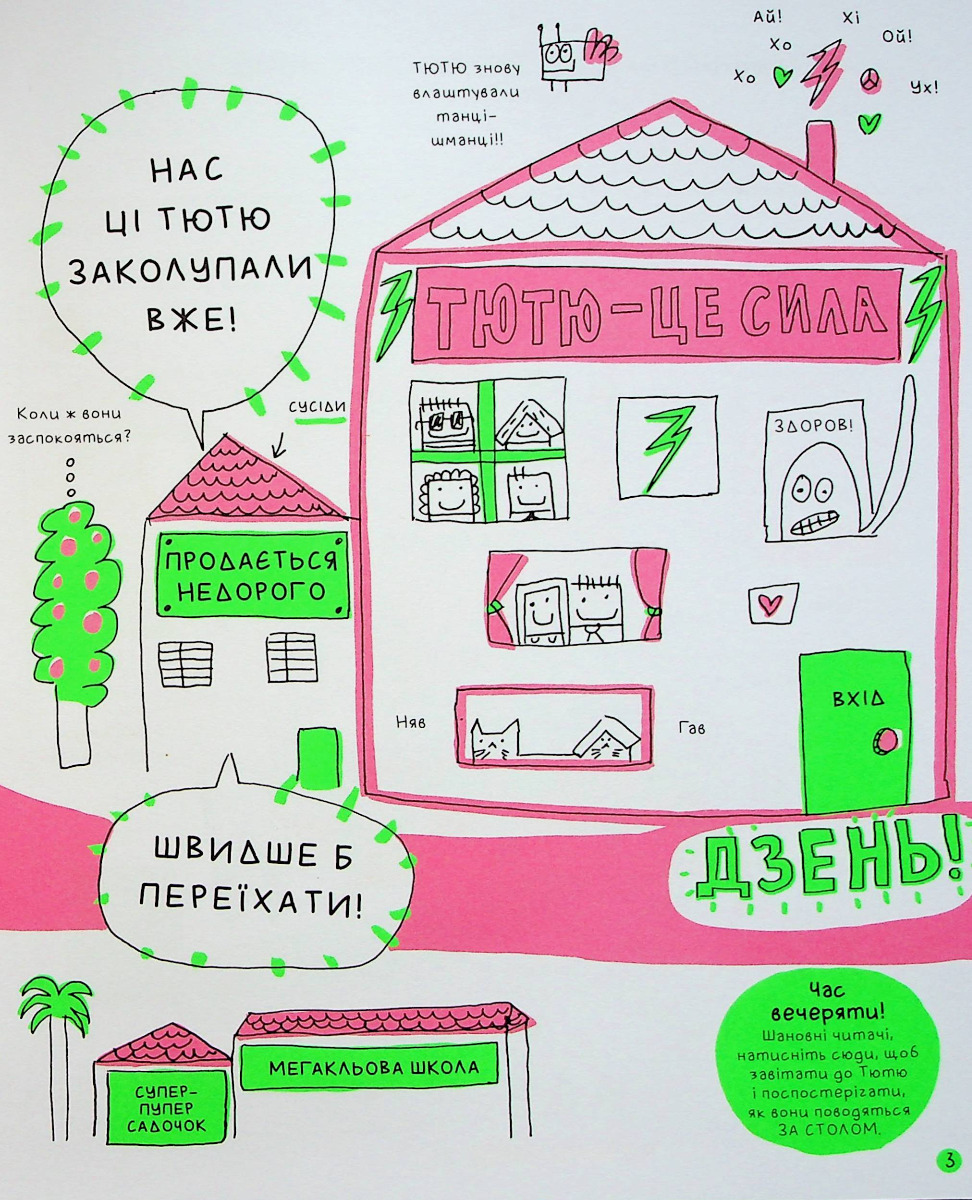 Ай!
Хі
Хо
Ой!
Хо
Ух!
ТЮТЮ знову
влаштували
танці-
шманці!!
НАС
ЦІ ТЮТЮ
ЗАКОЛУПАЛИ
ВЖЕ!
ТЮТЮ-ЦЕ СИЛА
Коли ж вони
заспокояться?
СУСІДИ
ЗДОРОВ!
ПРОДАЄТЬСЯ
НЕДОРОГО
Няв
Гав
ВХІД
ДЗЕНЬ!
ШВИДШЕ Б
ПЕРЕЇХАТИ!
СУПЕР-
ПУПЕР
САДОЧОК
МЕГАКЛЬОВА ШКОЛА
Час
вечеряти!
Шановні читачі,
натисніть сюди, щоб
завітати до Тютю
і поспостерігати,
як вони поводяться
ЗА СТОЛОМ.
3